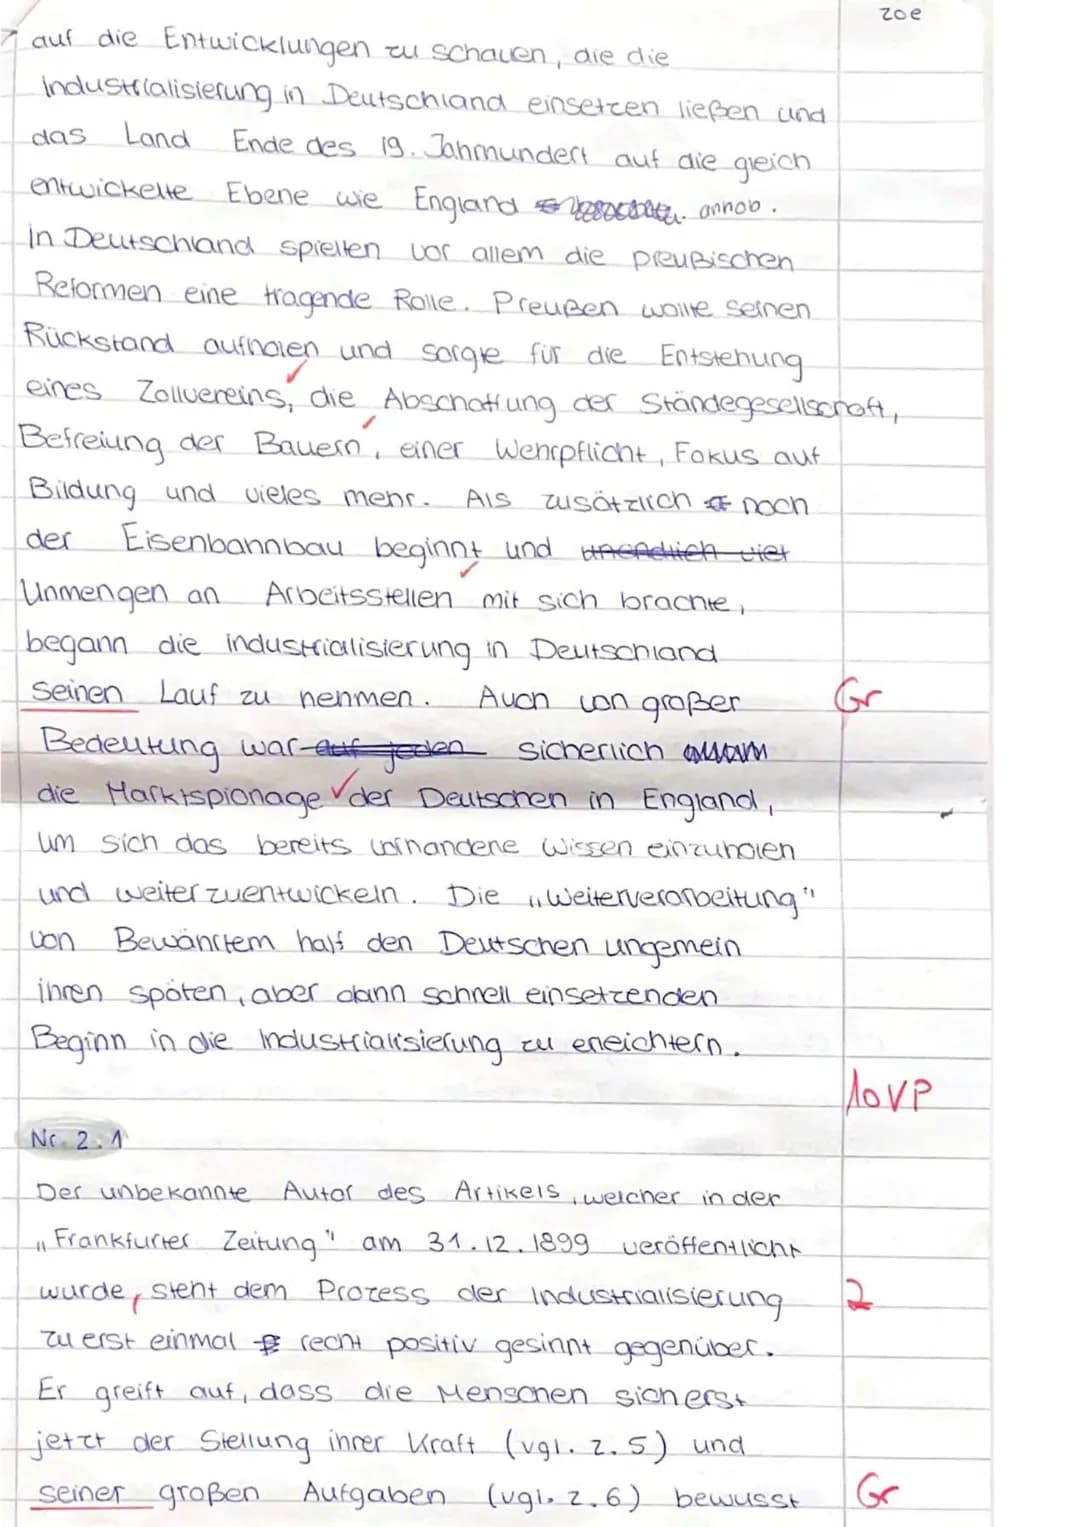 zoe
auf die Entwicklungen zu schauen, die die
Industrialisierung in Deutschland einsetzen ließen und
das Land Ende des 19. Jahrhundert auf die gleich
entwickelte Ebene wie England anhob.
In Deutschland spielten vor allem die preußischen
Reformen eine tragende Rolle. Preußen wollte seinen
Rückstand aufholen und sorgte für die Entstehung
eines Zollvereins, die Abschaffung der Ständegesellschaft,
Befreiung der Bauern, einer Wehrpflicht, Fokus auf
Bildung und vieles mehr. Als zusätzlich noch
der Eisenbahnbau beginnt und unendlich viel
Unmengen an Arbeitsstellen mit sich brachte,
begann die Industrialisierung in Deutschland
seinen Lauf zu nehmen. Auch von großer Gr
Bedeutung war auf jeden sicherlich
die Marktspionage der Deutschen in England,
um sich das bereits vorhandene Wissen einzuholen
und weiterzuentwickeln. Die „Weiterverarbeitung"
von Bewährtem half den Deutschen ungemein
ihren späten, aber dann schnell einsetzenden
Beginn in die Industrialisierung zu erleichtern.
10VP
Nr. 2.1
Der unbekannte Autor des Artikels, welcher in der
„Frankfurter Zeitung" am 31.12.1899 veröffentlicht
wurde, steht dem Prozess der Industrialisierung 2
zu erst einmal recht positiv gesinnt gegenüber.
Er greift auf, dass die Menschen sich erst
jetzt der Stellung ihrer Kraft (vgl. Z. 5) und
seiner großen Aufgaben (vgl. Z. 6) bewusst Gr